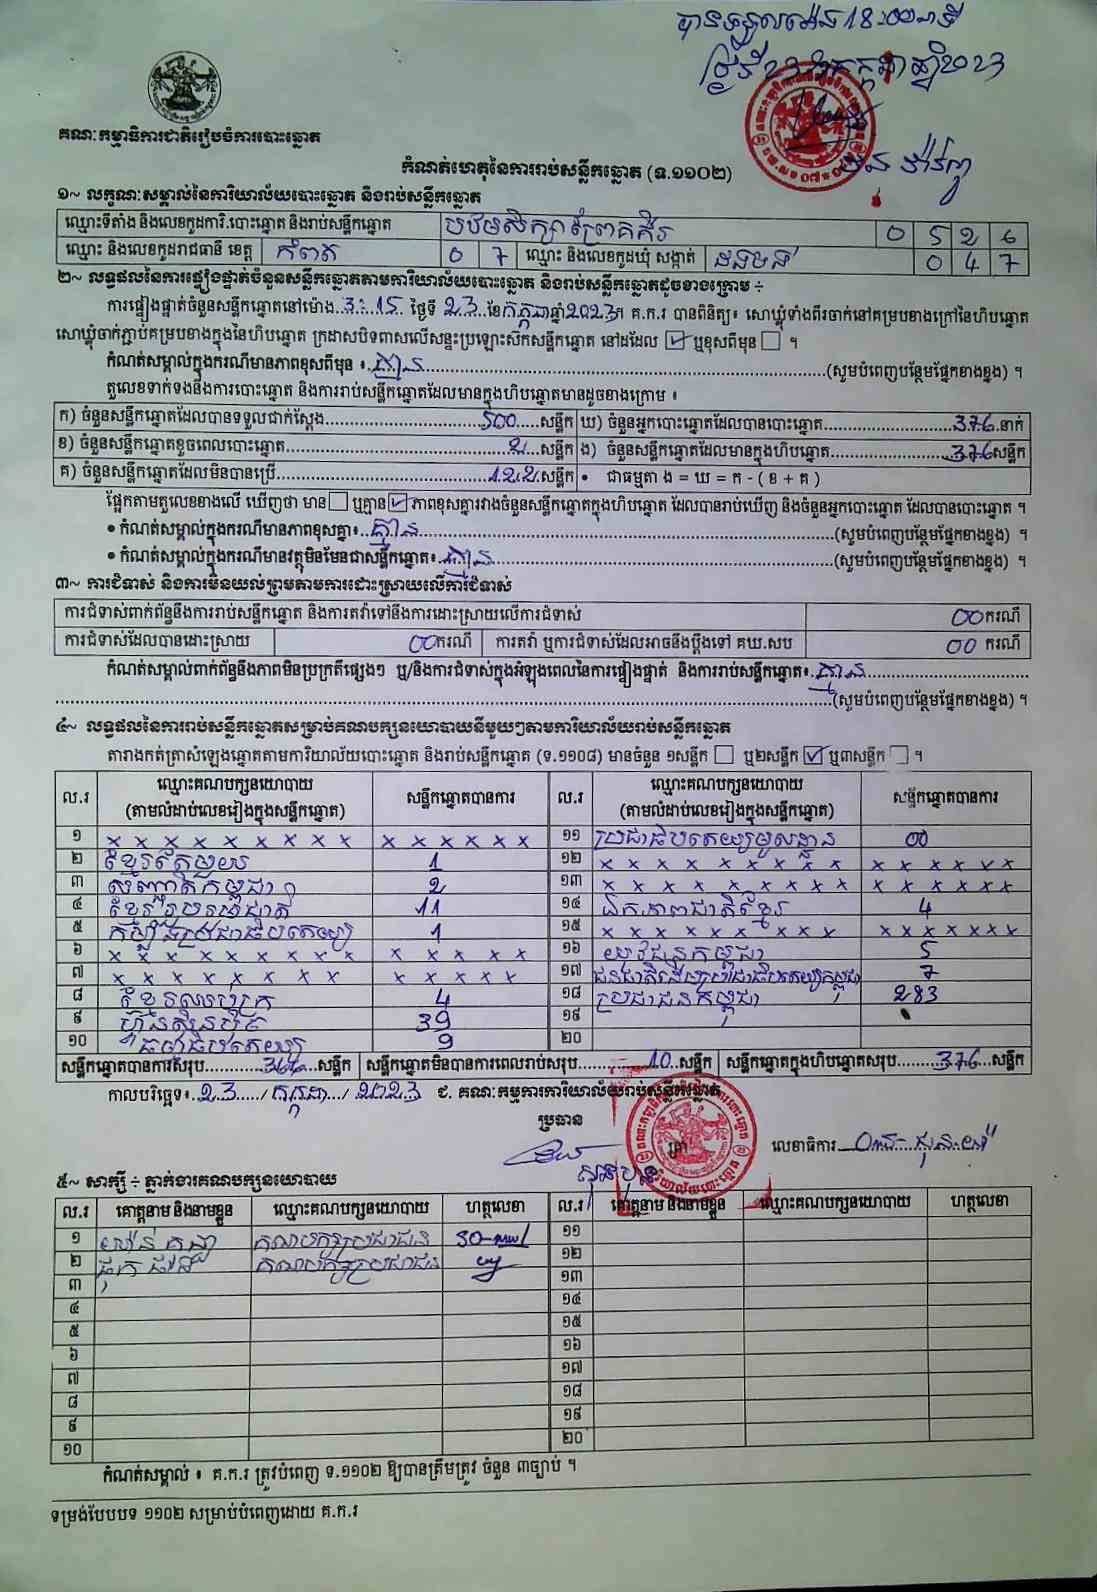 បានទទួលម៉ោង 18:00នាទី
ថ្ងៃទី២៣ ខែកក្កដា ឆ្នាំ២០២៣
គណៈកម្មាធិការជាតិរៀបចំការបោះឆ្នោត
កំណត់ហេតុនៃការរាប់សន្លឹកឆ្នោត (ទ.១១០២)
១~ លក្ខណៈសម្គាល់នៃការិយាល័យបោះឆ្នោត និងរាប់សន្លឹកឆ្នោត
ឈ្មោះទីតាំង និងលេខកូដការិ.បោះឆ្នោត និងរាប់សន្លឹកឆ្នោត បឋមសិក្សាព្រែគគីរ 0 5 2 6
ឈ្មោះ និងលេខកូដរាជធានី ខេត្ត កំពត 0 7 ឈ្មោះ និងលេខកូដឃុំ សង្កាត់ 0 4 7
២~ លទ្ធផលនៃការផ្ទៀងផ្ទាត់ចំនួនសន្លឹកឆ្នោតតាមការិយាល័យបោះឆ្នោត និងរាប់សន្លឹកឆ្នោតដូចខាងក្រោម ÷
ការផ្ទៀងផ្ទាត់ចំនួនសន្លឹកឆ្នោតនៅម៉ោង 3:15 ថ្ងៃទី 23 ខែកក្កដាឆ្នាំ2023។ គ.ក.រ បានពិនិត្យ៖ សោឃ្លុំទាំងពីរចាក់នៅគម្របខាងក្រៅនៃហិបឆ្នោត
សោឃ្លុំចាក់ភ្ជាប់គម្របខាងក្នុងនៃហិបឆ្នោត ក្រដាសបិទពាសលើសន្ទះប្រឡោះស៊កសន្លឹកឆ្នោត នៅដដែល ☑ ឬខុសពីមុន ☐ ។
កំណត់សម្គាល់ក្នុងករណីមានភាពខុសពីមុន ៖ គ្មាន (សូមបំពេញបន្ថែមផ្នែកខាងខ្នង) ។
តួលេខទាក់ទងនឹងការបោះឆ្នោត និងការរាប់សន្លឹកឆ្នោតដែលមានក្នុងហិបឆ្នោតមានដូចខាងក្រោម ៖
ក) ចំនួនសន្លឹកឆ្នោតដែលបានទទួលជាក់ស្តែង 500 សន្លឹក ឃ) ចំនួនអ្នកបោះឆ្នោតដែលបានបោះឆ្នោត 376 នាក់
ខ) ចំនួនសន្លឹកឆ្នោតខូចពេលបោះឆ្នោត 2 សន្លឹក ង) ចំនួនសន្លឹកឆ្នោតដែលមានក្នុងហិបឆ្នោត 376 សន្លឹក
គ) ចំនួនសន្លឹកឆ្នោតដែលមិនបានប្រើ 122 សន្លឹក • ជាធម្មតា ង = ឃ = ក - ( ខ + គ )
ផ្អែកតាមតួលេខខាងលើ ឃើញថា មាន ☐ ឬគ្មាន ☑ ភាពខុសគ្នារវាងចំនួនសន្លឹកឆ្នោតក្នុងហិបឆ្នោត ដែលបានរាប់ឃើញ និងចំនួនអ្នកបោះឆ្នោត ដែលបានបោះឆ្នោត ។
• កំណត់សម្គាល់ក្នុងករណីមានភាពខុសគ្នា៖ គ្មាន (សូមបំពេញបន្ថែមផ្នែកខាងខ្នង) ។
• កំណត់សម្គាល់ក្នុងករណីមានវត្ថុមិនមែនជាសន្លឹកឆ្នោត៖ គ្មាន (សូមបំពេញបន្ថែមផ្នែកខាងខ្នង) ។
៣~ ការជំទាស់ និងការមិនយល់ព្រមតាមការដោះស្រាយលើការជំទាស់
ការជំទាស់ពាក់ព័ន្ធនឹងការរាប់សន្លឹកឆ្នោត និងការតវ៉ាទៅនឹងការដោះស្រាយលើការជំទាស់ 00 ករណី
ការជំទាស់ដែលបានដោះស្រាយ 00 ករណី ការតវ៉ា ឬការជំទាស់ដែលអាចនឹងប្តឹងទៅ គឃ.សប 00 ករណី
កំណត់សម្គាល់ពាក់ព័ន្ធនឹងភាពមិនប្រក្រតីផ្សេងៗ ឬ/និងការជំទាស់ក្នុងអំឡុងពេលនៃការផ្ទៀងផ្ទាត់ និងការរាប់សន្លឹកឆ្នោត៖ គ្មាន
(សូមបំពេញបន្ថែមផ្នែកខាងខ្នង) ។
៤~ លទ្ធផលនៃការរាប់សន្លឹកឆ្នោតសម្រាប់គណបក្សនយោបាយនីមួយៗតាមការិយាល័យរាប់សន្លឹកឆ្នោត
តារាងកត់ត្រាសំឡេងឆ្នោតតាមការិយាល័យបោះឆ្នោត និងរាប់សន្លឹកឆ្នោត (ទ.១១០៨) មានចំនួន ១សន្លឹក ☐ ឬ២សន្លឹក ☑ ឬ៣សន្លឹក ☐ ។
ល.រ ឈ្មោះគណបក្សនយោបាយ (តាមលំដាប់លេខរៀងក្នុងសន្លឹកឆ្នោត) សន្លឹកឆ្នោតបានការ ល.រ ឈ្មោះគណបក្សនយោបាយ (តាមលំដាប់លេខរៀងក្នុងសន្លឹកឆ្នោត) សន្លឹកឆ្នោតបានការ
១ x x x x x x x x x x x x x x x ១១ ប្រជាធិបតេយ្យមូលដ្ឋាន 00
២ ខ្មែរតែមួយ 1 ១២ x x x x x x x x x x x x x x x
៣ សញ្ជាតិកម្ពុជា 2 ១៣ x x x x x x x x x x x x x x x
៤ ខ្មែររួបរួមជាតិ 11 ១៤ ឯកភាពជាតិខ្មែរ 4
៥ កម្លាំងប្រជាធិបតេយ្យ 1 ១៥ x x x x x x x x x x x x x x x
៦ x x x x x x x x x x x x x x ១៦ យុវជនកម្ពុជា 5
៧ x x x x x x x x x x x x x ១៧ ជនជាតិដើមប្រជាធិបតេយ្យកម្ពុជា 7
៨ ខ្មែរឈប់ក្រ 4 ១៨ ប្រជាជនកម្ពុជា 283
៩ ហ៊្វុនស៊ិនប៉ិច 39 ១៩
១០ ធម្មាធិបតេយ្យ 9 ២០
សន្លឹកឆ្នោតបានការសរុប 366 សន្លឹក សន្លឹកឆ្នោតមិនបានការពេលរាប់សរុប 10 សន្លឹក សន្លឹកឆ្នោតក្នុងហិបឆ្នោតសរុប 376 សន្លឹក
កាលបរិច្ឆេទ៖ 23 / កក្កដា / 2023 ជ. គណៈកម្មការការិយាល័យរាប់សន្លឹកឆ្នោត
ប្រធាន
ត្រា
លេខាធិការ
៥~ សាក្សី ÷ ភ្នាក់ងារគណបក្សនយោបាយ
ល.រ គោត្តនាម និងនាមខ្លួន ឈ្មោះគណបក្សនយោបាយ ហត្ថលេខា ល.រ គោត្តនាម និងនាមខ្លួន ឈ្មោះគណបក្សនយោបាយ ហត្ថលេខា
១ គណបក្សប្រជាជន ១១
២ គណបក្សប្រជាជន ១២
៣ ១៣
៤ ១៤
៥ ១៥
៦ ១៦
៧ ១៧
៨ ១៨
៩ ១៩
១០ ២០
កំណត់សម្គាល់ ៖ គ.ក.រ ត្រូវបំពេញ ទ.១១០២ ឱ្យបានត្រឹមត្រូវ ចំនួន ៣ច្បាប់ ។
ទម្រង់បែបបទ ១១០២ សម្រាប់បំពេញដោយ គ.ក.រ